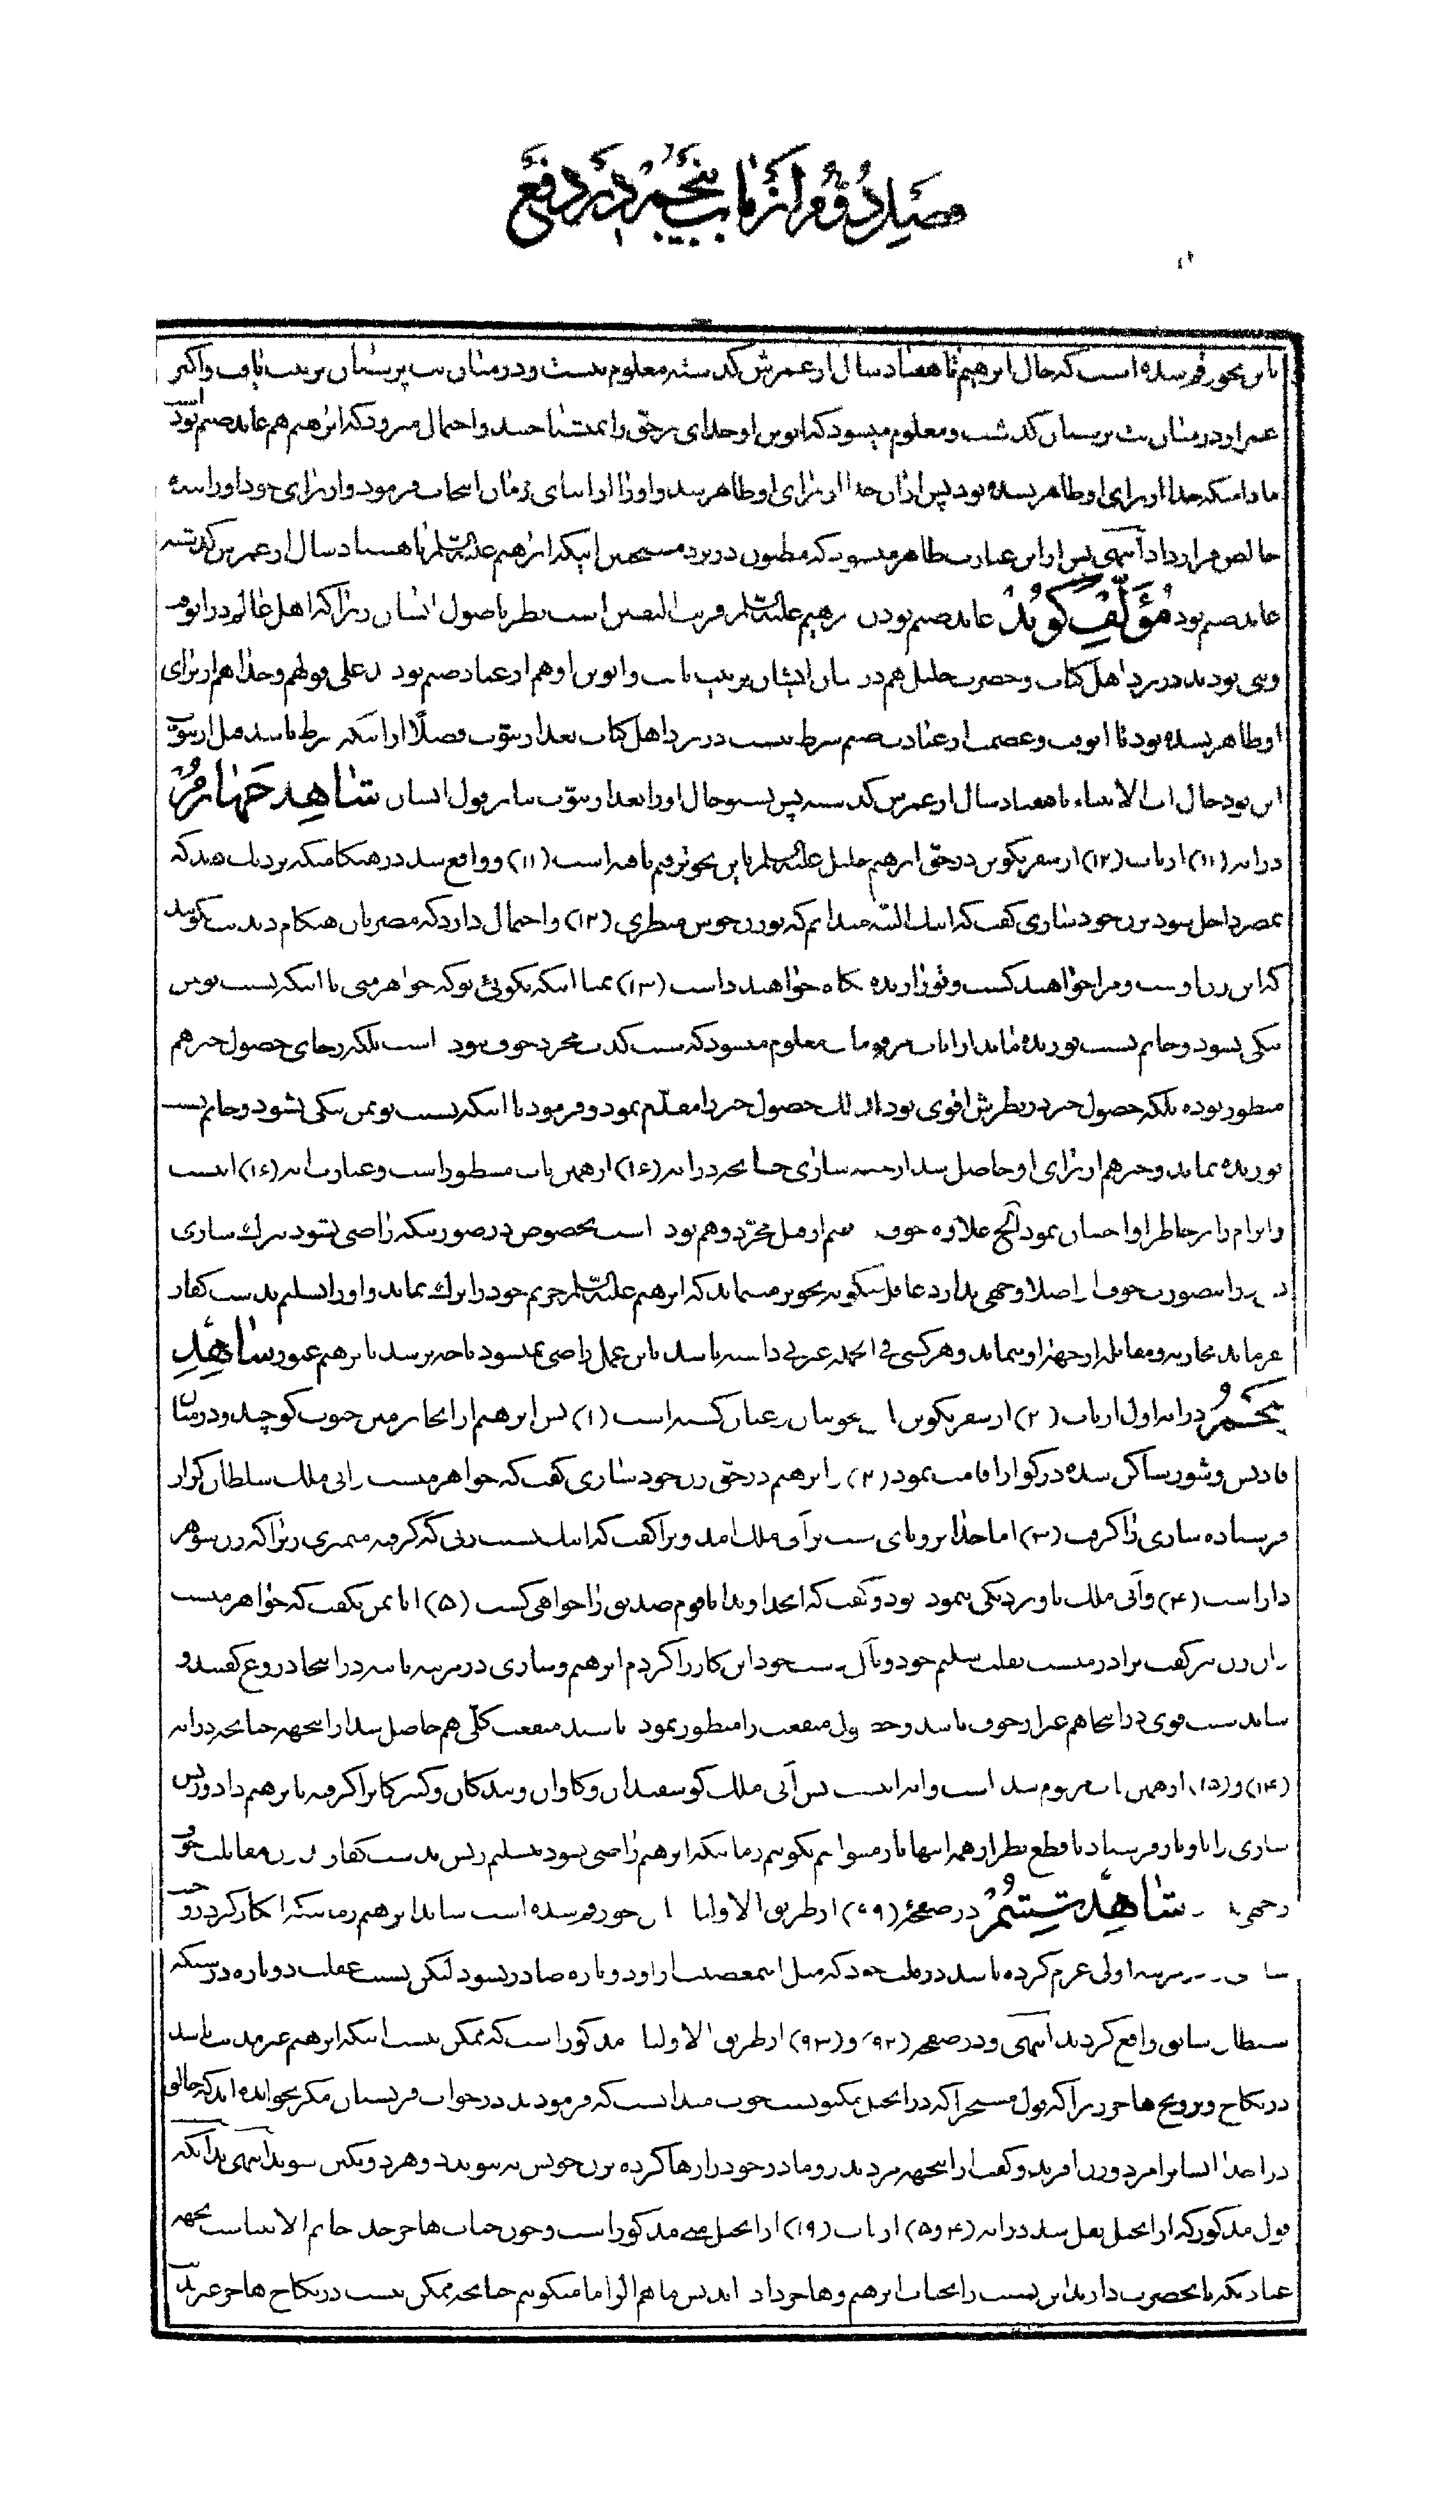 فصل دوم از باب پنجم در دفع
باین نحو رقم شده است که حال ابرهیم تا هفتاد سال از عمرش گذشته معلوم نیست و در میان بت پرستان تربیت یافت و اکثر
عمر او در میان بت پرستان گذشت و معلوم میشود که ابوین او خدای برحق را نمیشناختند و احتمال میرود که ابرهیم هم عابد صنم بوده است
مادامیکه خدا از برای او ظاهر نشده بود پس ازان خدا از برای او ظاهر شد و او را از ابنای زمان انتخاب فرمود و از برای خود او را بنده
خالص قرار داد انتهی پس از این عبارت ظاهر میشود که مظنون در نزد مسیحیین اینکه ابرهیم علیه السلام تا هفتاد سال از عمرش گذشته
عابد صنم بود مؤلف گوید عابد صنم بودن ابرهیم علیه السلام قریب الیقین است نظر باصول ایشان زیرا که اهل عالم در انوقت
وثنی بودند در نزد اهل کتاب و حضرت خلیل هم در میان ایشان تربیت یافت و ابوین او هم از عباد صنم بودند علی قولهم و خدا هم از برای
او ظاهر نشده بود تا انوقت و عصمت از عبادت صنم شرط نیست در نزد اهل کتاب بعد از نبوت فضلاً از اینکه شرط باشد قبل از نبوت
این بود حال اب الانبیاء تا هفتاد سال از عمرش گذشته پس بشنو حال او را بعد از نبوت بنابر قول ایشان شاهد چهارم
در ایه (۱۱) از باب (۱۲) از سفر تکوین در حق ابرهیم خلیل علیه السلام باین نحو ترقیم یافته است (۱۱) و واقع شد در هنگامیکه نزدیک شد که
بمصر داخل شود بزن خود ساری گفت که اینک البته میدانم که تو زن خوش منظری (۱۲) و احتمال دارد که مصریان هنگام دیدنت گویند
که این زن اوست و مرا خواهند کشت و تو را زنده نگاه خواهند داشت (۱۳) تمنا اینکه بگوئی تو که خواهر منی تا اینکه بسبب تو بمن
نیکی بشود و جانم بسبب تو زنده بماند از ایات مرقومات معلوم میشود که سبب کذب مجرد خوف نبوده است بلکه رجای حصول خیر هم
منظور بوده بلکه حصول خیر در نظرش اقوی بود لذلک حصول خیر را مقدم نمود و فرمود تا اینکه بسبب تو بمن نیکی بشود و جانم بسبب
تو زنده بماند و خیر هم از برای او حاصل شد از جهت ساری چنانچه در ایه (۱۶) از همین باب مسطور است و عبارت ایه (۱۶) اینست
و ابرام را بر خاطر او احسان نمود الخ علاوه خوف هم از قتل مجرد وهم بوده است بخصوص در صورتیکه راضی بشود بترک ساری
در اینصورت خوف را اصلا وجهی ندارد عاقل چگونه تجویز مینماید که ابرهیم علیه السلام حریم خود را ترک نماید و او را تسلیم بدست کفار
نماید محاربه و مقاتله از جهة او ننماید و هر کسی فی الجمله غیرتی داشته باشد باین عمل راضی نمیشود تا چه برسد بابرهیم غیور شاهد
پنجم در ایه اول از باب (۲۰) از سفر تکوین ا عیان گشته است (۱) پس ابرهیم از انجا بزمین جنوب کوچید و در میان
قادیش و شور ساکن شده در گرار اقامت نمود (۲) و ابرهیم در حق زن خود ساری گفت که خواهر منست و ابی ملک سلطان گرار
فرستاده ساری را گرفت (۳) اما خدا در رویای شب بر ابی ملک امد و برا گفت که اینک بسبب زنی که گرفته میمیری زیرا که زن شوهر
دار است (۴) و ابی ملک باو نزدیکی ننموده بود و گفت که ایخداوند ایا قوم صدیق را خواهی کشت (۵) ایا بمن نگفت که خواهر منست
و ان زن نیز گفت برادر منست بقلب سلیم خود و پاکی دست خود این کار را کردم ابرهیم و ساری در مرتبه ثانیه در اینجا دروغ گفتند و
شاید سبب قوی در اینجا هم غیر از خوف باشد و حصول منفعت را منظور نموده باشند منفعت کلی هم حاصل شد از اینجهة چنانچه در ایه
(۱۴) و (۱۵) از همین باب مرقوم شده است و ایه اینست پس ابی ملک گوسفندان و گاوان و بندگان و کنیزکانرا گرفته بابرهیم داد و زنش
ساری را باو باز فرستاد با قطع نظر از همه اینها باز میتوانیم بگوئیم زمانیکه ابرهیم راضی بشود بتسلیم زنش بدست کفار بدون مقاتله خوف
وجهی شاهد ششم در صفحه (۹۹) از طریق الاولیا این نحو رقم شده است شاید ابرهیم زمانیکه انکار کرد زوجیت
سا مرتبه اولی عزم کرده باشد در قلب خود که مثل این معصیت از او دوباره صادر نشود لیکن بسبب غفلت دوباره در شبکه
شیطان سابق واقع گردید انتهی و در صفحه (۹۲) و (۹۳) از طریق الاولیا مذکور است که ممکن نیست اینکه ابرهیم غیر مذنب باشد
در نکاح و تزویج هاجر زیرا که قول مسیح را که در انجیل مکتوبست خوب میدانست که فرمودند در جواب فریسیان مگر نخوانده اید که خالق
در ابتدا انسانرا مرد و زن افرید و گفت از اینجهة مرد پدر و مادر خود را رها کرده بزن خویش به پیوندد و هر دو یکتن شوند انتهی بدانکه
قول مذکور که از انجیل نقل شد در ایه (۴ و ۵) از باب (۱۹) از انجیل متی مذکور است و چون جناب هاجر جده خاتم الانبیاست بجهة
عنادیکه بانحضرت دارند این نسبت را بجناب ابرهیم و هاجر داده اند پس ما هم الزاما میگوئیم چنانچه ممکن نیست در نکاح هاجر غیر مذنب